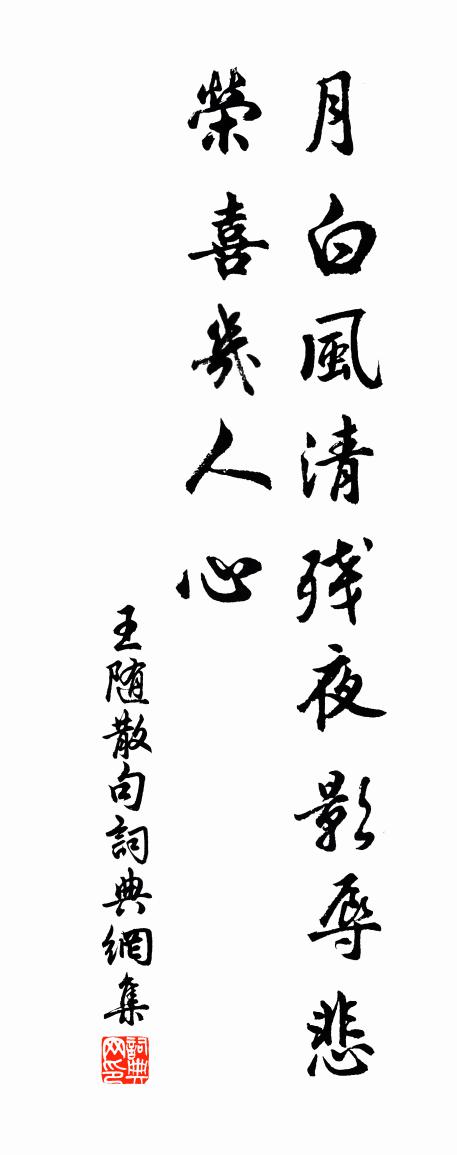 月白風清殘夜影辱悲
榮喜幾人心
王随散句詞典網集
詞典网印